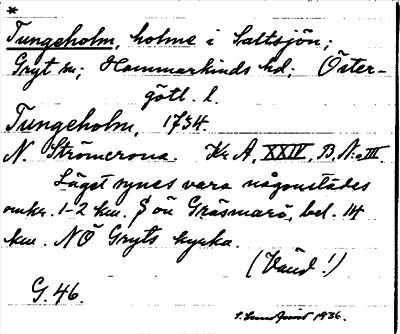 *
Tungeholm, holme i Saltsjön;
Gryt sn; Hammarkinds hd; Öster-
götl. l.
Tungeholm, 1734.
N. Strömcrona. Kr A, XXIV, B. N:o III.
Läget synes vara någonstädes
omkr. 1-2 km. S ön Gräsmarö, bel. 14
km. NÖ Gryts kyrka.
(Vänd!)
G. 46.
1936.